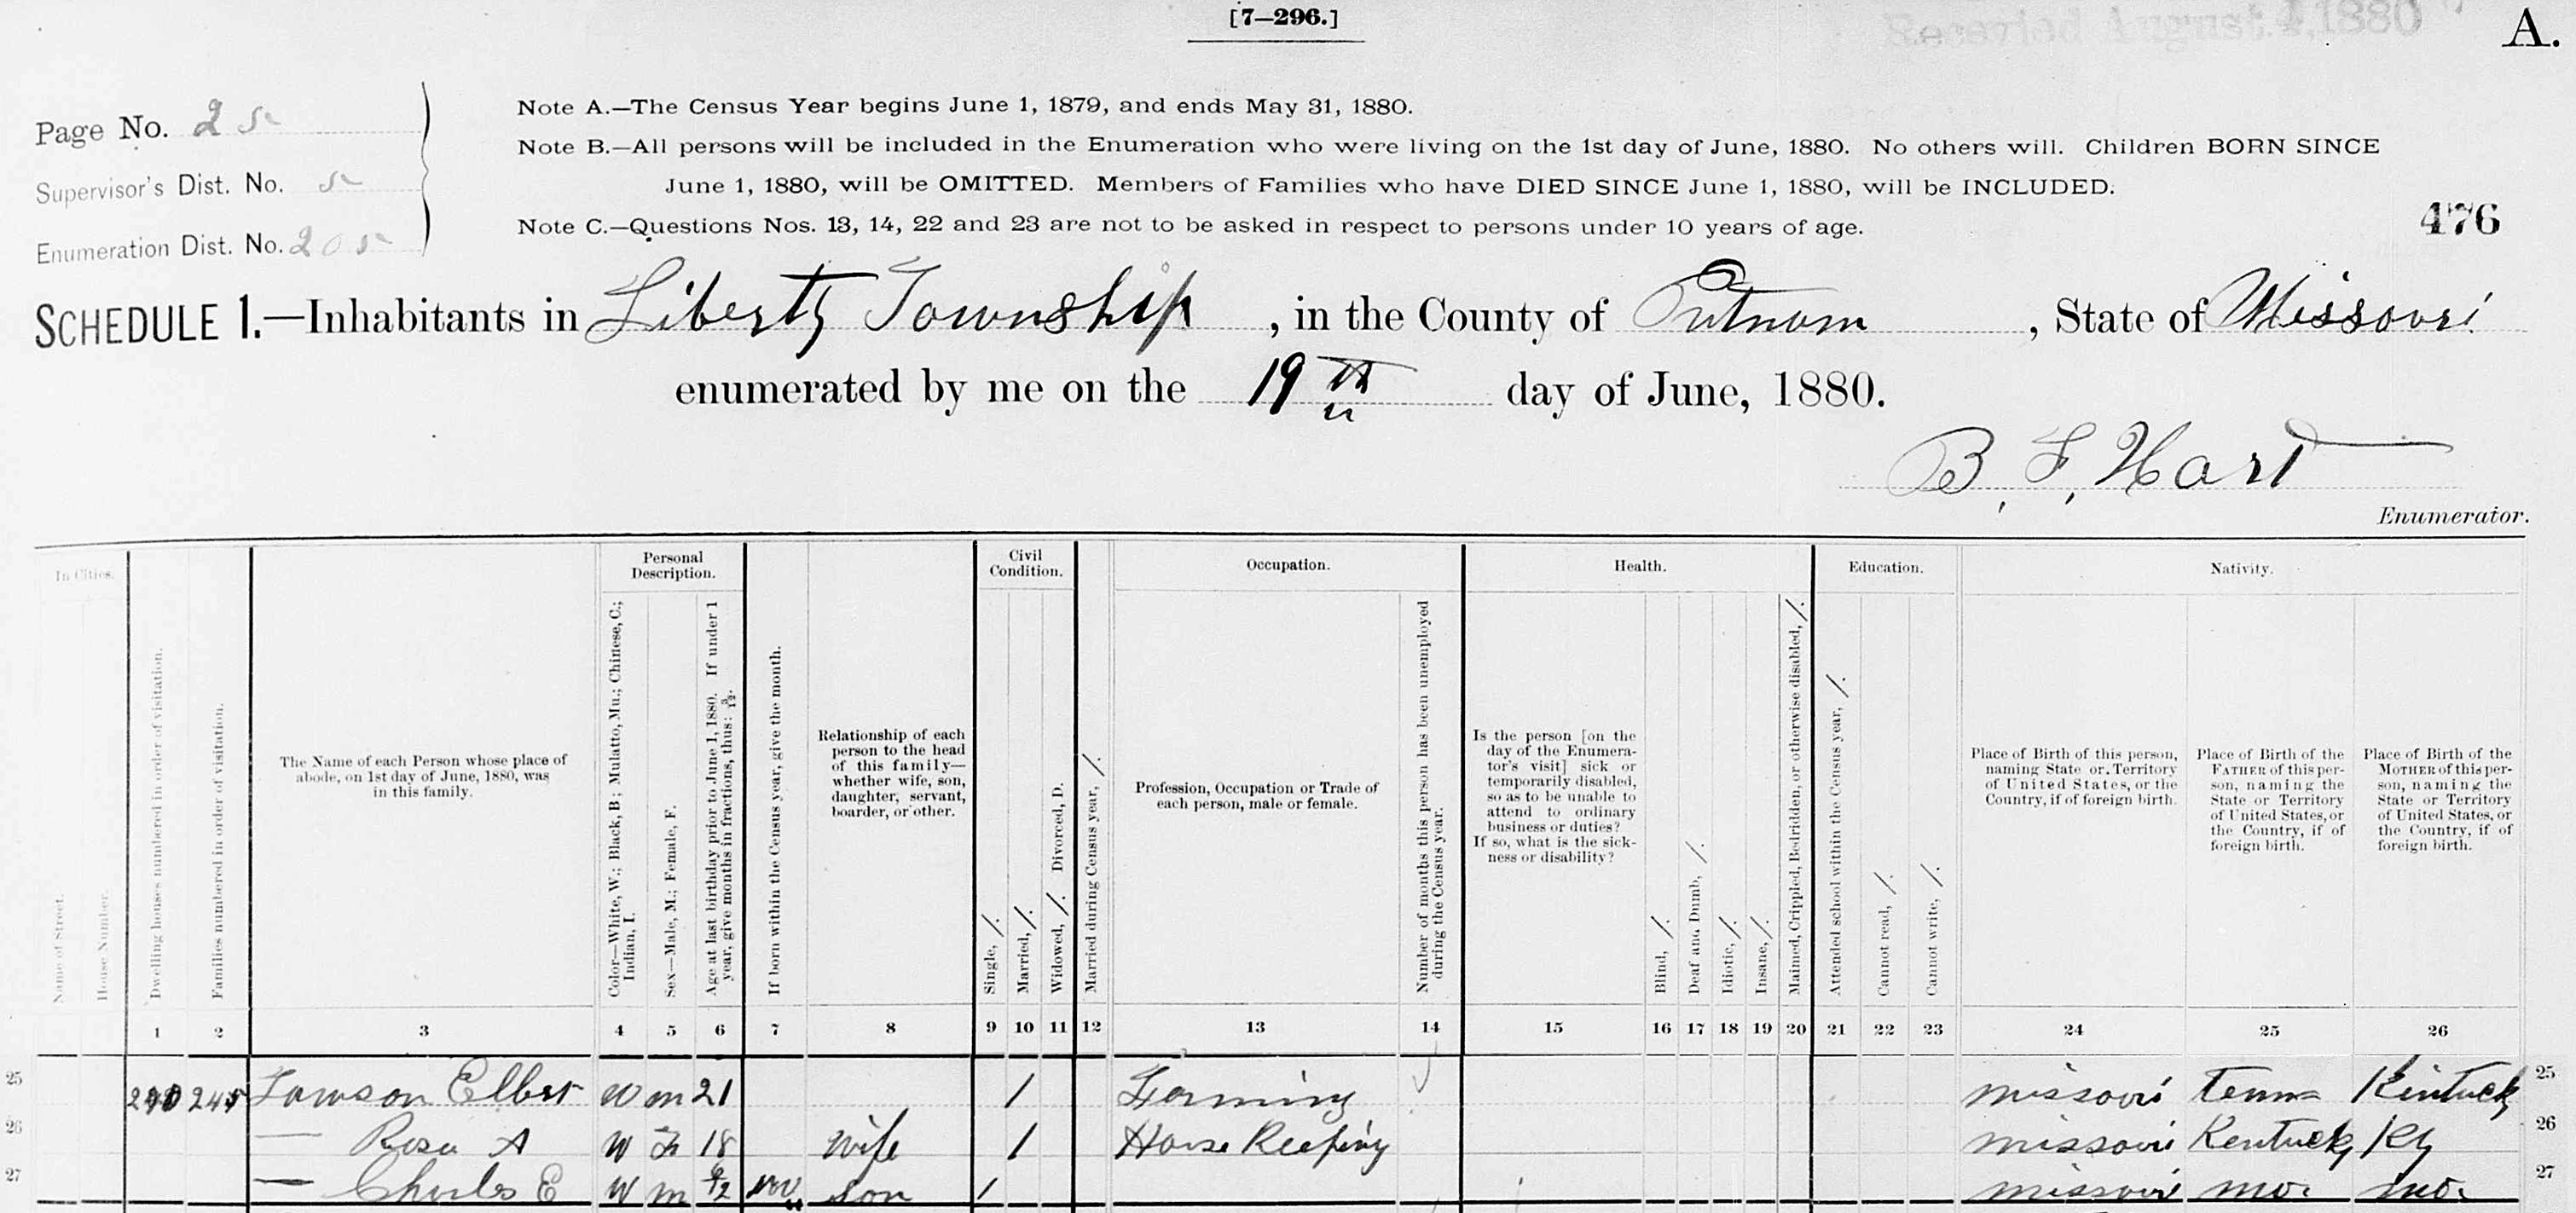 [7—296.]
Received August 4, 1880
A.
Page No. 25
Supervisor's Dist. No. 5
Enumeration Dist. No. 205
Note A.—The Census Year begins June 1, 1879, and ends May 31, 1880.
Note B.—All persons will be included in the Enumeration who were living on the 1st day of June, 1880. No others will. Children BORN SINCE
June 1, 1880, will be OMITTED. Members of Families who have DIED SINCE June 1, 1880, will be INCLUDED.
Note C.—Questions Nos. 13, 14, 22 and 23 are not to be asked in respect to persons under 10 years of age.
476
SCHEDULE 1.—Inhabitants in Liberty Township, in the County of Putnam, State of Missouri
enumerated by me on the 19th day of June, 1880.
B. F. Hart
Enumerator.
In Cities.
Personal Description.
Civil Condition.
Occupation.
Health.
Education.
Nativity.
Name of Street.
House Number.
Dwelling houses numbered in order of visitation.
Families numbered in order of visitation.
The Name of each Person whose place of
abode, on 1st day of June, 1880, was
in this family.
Color—White, W.; Black, B; Mulatto, Mu.; Chinese, C.;
Indian, I.
Sex—Male, M.; Female, F.
Age at last birthday prior to June 1, 1880. If under 1
year, give months in fractions, thus: 3/12.
If born within the Census year, give the month.
Relationship of each
person to the head
of this family—
whether wife, son,
daughter, servant,
boarder, or other.
Single, /.
Married, /.
Widowed, /. Divorced, D.
Married during Census year, /.
Profession, Occupation or Trade of
each person, male or female.
Number of months this person has been unemployed
during the Census year.
Is the person [on the
day of the Enumera-
tor's visit] sick or
temporarily disabled,
so as to be unable to
attend to ordinary
business or duties?
If so, what is the sick-
ness or disability?
Blind, /.
Deaf and Dumb, /.
Idiotic, /.
Insane, /.
Maimed, Crippled, Bedridden, or otherwise disabled, /.
Attended school within the Census year, /.
Cannot read, /.
Cannot write, /.
Place of Birth of this person,
naming State or Territory
of United States, or the
Country, if of foreign birth.
Place of Birth of the
FATHER of this per-
son, naming the
State or Territory
of United States, or
the Country, if of
foreign birth.
Place of Birth of the
MOTHER of this per-
son, naming the
State or Territory
of United States, or
the Country, if of
foreign birth.
1 2 3 4 5 6 7 8 9 10 11 12 13 14 15 16 17 18 19 20 21 22 23 24 25 26
25 245 Elbert W m 21 / Farming missouri tenn Kentucky 25
26 — Rosa A W F 18 wife / House Keeping missouri Kentucky Ky 26
27 — Charles E W m son / missouri mo. mo. 27